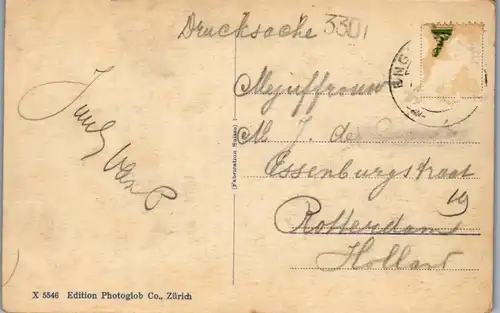 Drucksache 3301
ENG
Mejuffrouw
M. J. de
Essenburgstraat
19
Rotterdam
Holland
(Fabrication Suisse)
X 5546 Edition Photoglob Co., Zürich